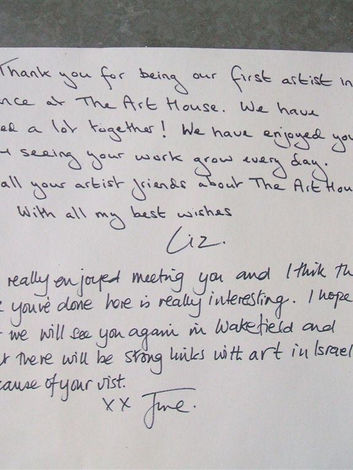 Thank you for being our first artist in
nce at The Art House. We have
ed a lot together! We have enjoyed you
seeing your work grow every day.
all your artist friends about The Art Hou
With all my best wishes
Liz.
really enjoyed meeting you and I think th
you've done here is really interesting. I hope
we will see you again in Wakefield and
t there will be strong links with art in Israel
cause of your vist.
xx June.